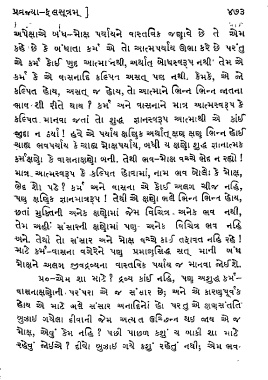 પ્રવ્રજ્યા-ફલસૂત્રમ્ ] ૪૭૩
અપેક્ષાએ બંધ-મોક્ષ પર્યાયને વાસ્તવિક જણાવે છે તે એમ
કહે છે કે બંધાતા કર્મ એ તો આત્મપર્યાય ઊભા કરે છે પરંતુ
એ કર્મ કોઈ જુદુ આત્માનથી, અર્થાત્ બોધસ્વરૂપ નથી તેમ એ
કર્મ કે એ વાસનાદિ કલ્પિત અસત્ પણ નથી. કેમકે, એ જો
કલ્પિત હોય, અસત્ જ હોય, તો આત્માને ભિન્ન ભિન્ન જાતના
ભાવ શી રીતે થાય ? કર્મ અને વાસનાને માત્ર આત્મસ્વરૂપ કે
કલ્પિત માનવા જતાં તો શુદ્ધ જ્ઞાનસ્વરૂપ આત્માથી એ કાંઈ
જુદા ન ઠર્યા ! હવે એ પર્યાય ક્ષણિક અર્થાત્ ક્ષણ ક્ષણ ભિન્ન હોઈ
ચાહ્ય ભવપર્યાય કે ચાહ્ય મોક્ષપર્યાય, બંધી ય ક્ષણો શુદ્ધ જ્ઞાનાત્મક
કર્મક્ષણો કે વાસનાક્ષણો બની. તેથી ભવ-મોક્ષ વચ્ચે ભેદ ન રહ્યો !
માત્ર આત્મસ્વરૂપ કે કલ્પિત હોવામાં, નામ ભવ બોલો કે મોક્ષ,
ભેદ શો પડે ? કર્મ અને વાસના એ કોઈ અલગ ચીજ નહિ,
પણ ક્ષણિક જ્ઞાનમાત્રરૂપ ! તેથી એ ક્ષણો ભલે ભિન્ન ભિન્ન હોય,
છતાં મુક્તિની અનેક ક્ષણોમાં જેમ વિચિત્ર અનેક ભવ નથી,
તેમ અહીં સંસારની ક્ષણોમાં પણ અનેક વિચિત્ર ભવ નહિ
બને. તેથી તો સંસાર અને મોક્ષ વચ્ચે કાંઈ તફાવત નહિ રહે !
માટે કર્મ-વાસના વગેરેને પણ પ્રમાણસિદ્ધ સત્ માની બંધ
મોક્ષને અલગ જીવદ્રવ્યના વાસ્તવિક પર્યાય જ માનવા જોઈએ.
પ્ર૦-એમ શા માટે ? દ્રવ્ય કાંઈ નહિ, પણ અશુદ્ધ કર્મ-
વાસનાક્ષણોની પરંપરા એ જ સંસાર છે; અને એ કારણપૂર્વક
હોય એ માટે ભલે સંસાર અનાદિનો હો પરંતુ એ ક્ષણસંતતિ
બુઝાઈ ગયેલા દીવાની જેમ અત્યંત ઉચ્છિન્ન થઈ જાય એ જ
મોક્ષ, એવું કેમ નહિ ? પછી પાછળ કશું ય બાકી શા માટે
રહેવું જોઈએ ? દીવો બુઝાઈ ગયે કશું રહેતું નથી; એમ ભવ-